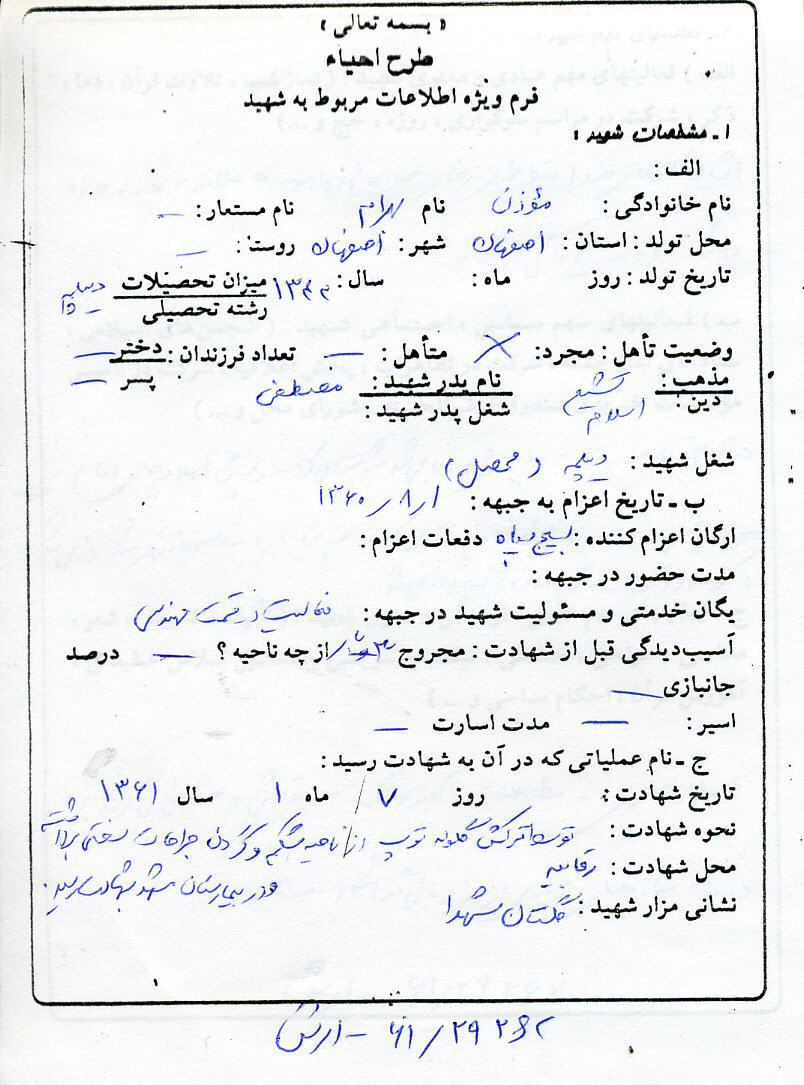 « بسمه تعالی »
طرح احیاء
فرم ویژه اطلاعات مربوط به شهید
۱ـ مشخصات شهید :
الف :
نام خانوادگی : مؤذن نام بهرام نام مستعار : ـ
محل تولد : استان : اصفهان شهر : اصفهان روستا : ـ
تاریخ تولد : روز ماه : سال : ۱۳۴۲ میزان تحصیلات دیپلم
رشته تحصیلی
وضعیت تأهل : مجرد : × متأهل : ـ تعداد فرزندان : دختر ـ
مذهب : تشیع نام پدر شهید : مصطفی پسر ـ
دین : اسلام شغل پدر شهید :
شغل شهید : دیپلمه (محصل)
ب ـ تاریخ اعزام به جبهه : ۱/۸/۱۳۶۰
ارگان اعزام کننده : بسیج سپاه دفعات اعزام :
مدت حضور در جبهه :
یگان خدمتی و مسئولیت شهید در جبهه : فعالیت در قسمت مهندسی
آسیب‌دیدگی قبل از شهادت : مجروح از چه ناحیه ؟ ـ درصد
جانبازی ـ
اسیر : ـ مدت اسارت ـ
ج ـ نام عملیاتی که در آن به شهادت رسید :
تاریخ شهادت : روز ۷ / ماه ۱ سال ۱۳۶۱
نحوه شهادت : توسط ترکش گلوله توپ از ناحیه شکم و گردن جراحات سختی برداشته
محل شهادت : رقابیه و در بیمارستان مشهد بشهادت رسید.
نشانی مزار شهید : گلستان شهدا